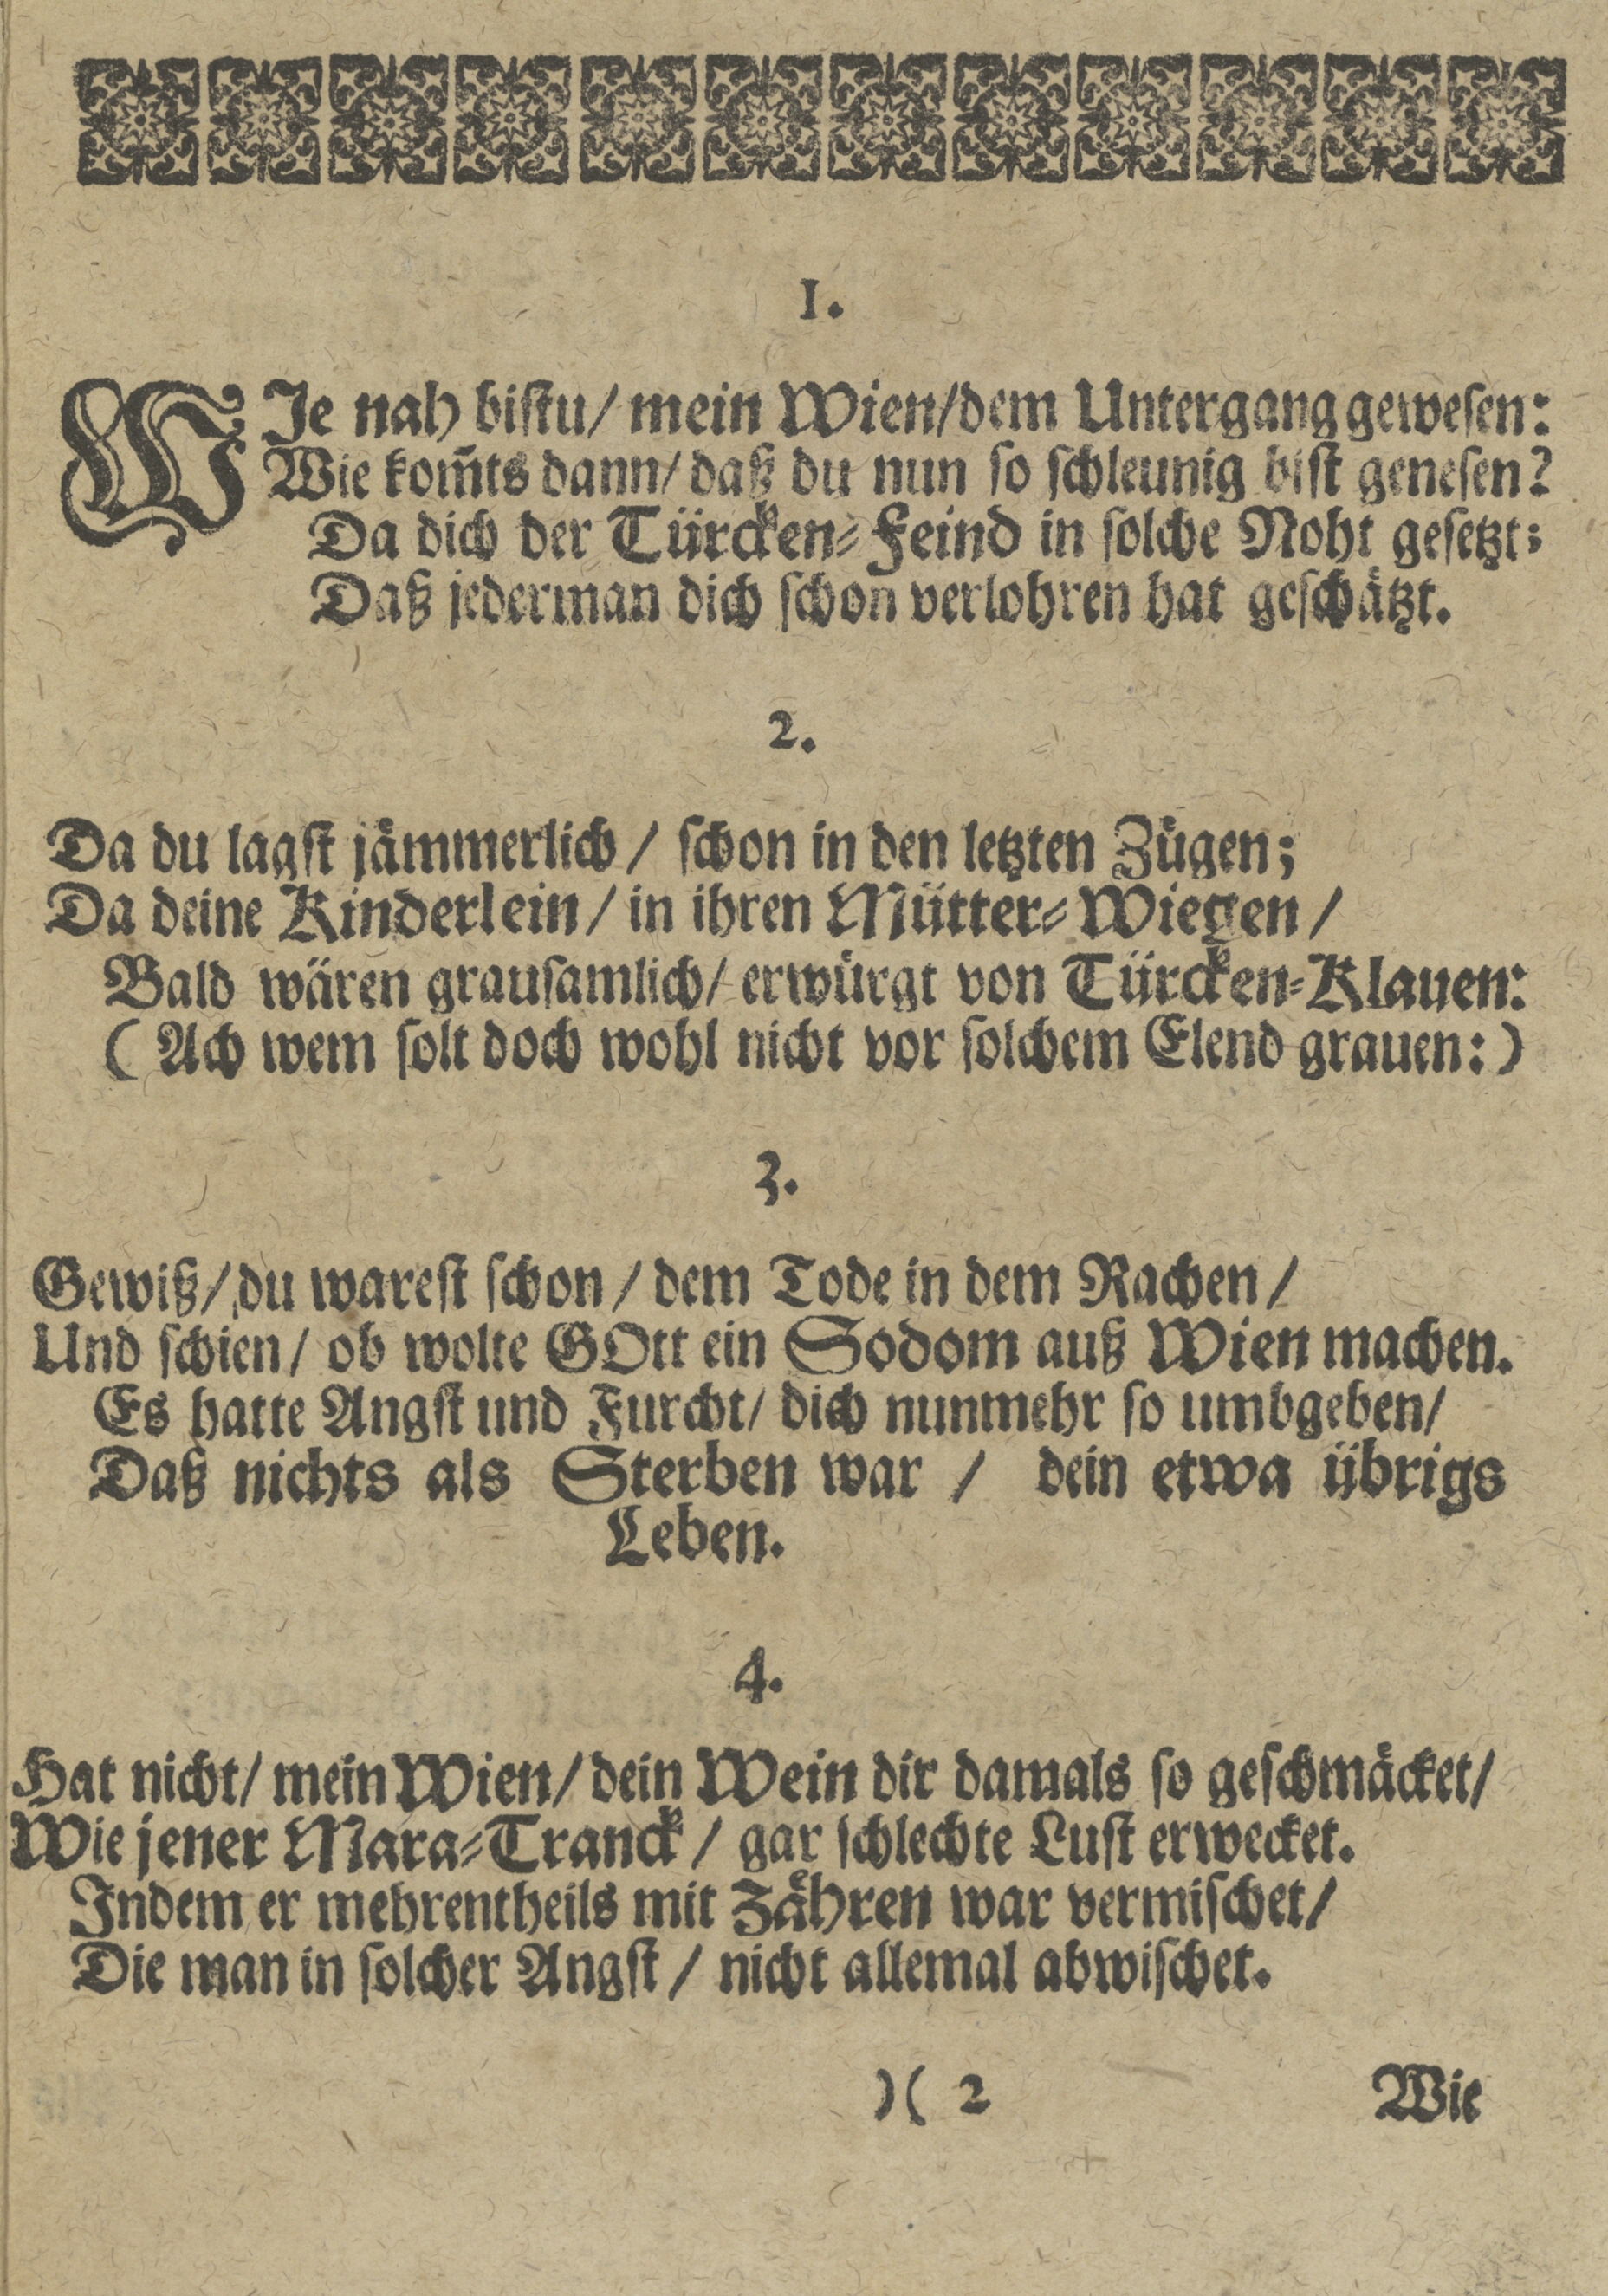 1.
WIe nah bistu/ mein Wien/dem Untergang gewesen:
Wie kom̃ts dann/ daß du nun so schleunig bist genesen?
Da dich der Türcken-Feind in solche Noht gesetzt;
Daß jederman dich schon verlohren hat geschätzt.
2.
Da du lagst jämmerlich/ schon in den letzten Zügen;
Da deine Kinderlein/ in ihren Mütter-Wiegen/
Bald wären grausamlich/ erwürgt von Türcken-Klauen:
(Ach wem solt doch wohl nicht vor solchem Elend grauen:)
3.
Gewiß/ du warest schon/ dem Tode in dem Rachen/
Und schien/ ob wolte GOtt ein Sodom auß Wien machen.
Es hatte Angst und Furcht/ dich nunmehr so umbgeben/
Daß nichts als Sterben war / dein etwa übrigs
Leben.
4.
Hat nicht/ mein Wien/ dein Wein dir damals so geschmäcket/
Wie jener Mara-Tranck/ gar schlechte Lust erwecket.
Indem er mehrentheils mit Zähren war vermischet/
Die man in solcher Angst/ nicht allemal abwischet.
)( 2 Wie